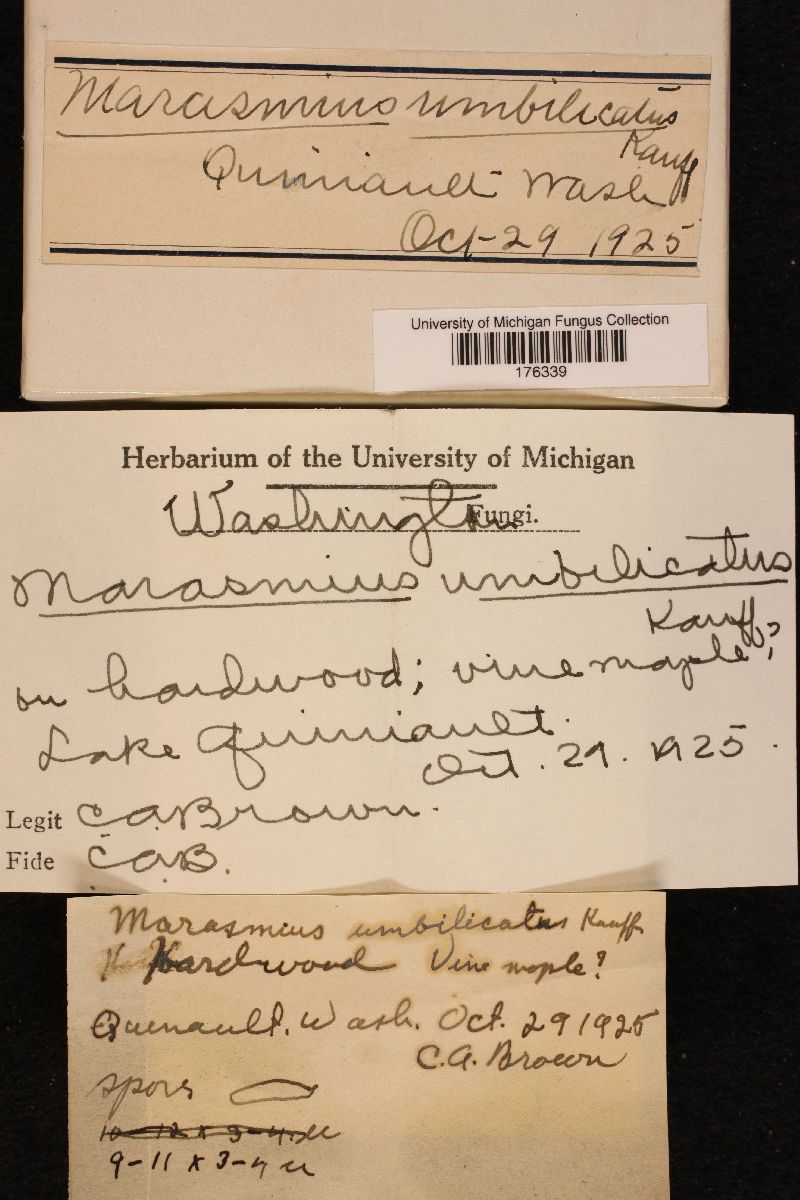 Marasmius umbilicatus
Kauff
Quiniault Wash
Oct-29 1925
University of Michigan Fungus Collection
176339
Herbarium of the University of Michigan
Washington Fungi.
Marasmius umbilicatus
Kauff
on hardwood; vine maple?
Lake Quiniault.
Oct. 29. 1925.
Legit C.A.Brown.
Fide C.A.B.
Marasmius umbilicatus Kauff
Hardwood Vine maple?
Quenault. Wash. Oct. 29 1925
C.A. Brown
spores
10-12 x 3-4 u
9-11 x 3-4 u